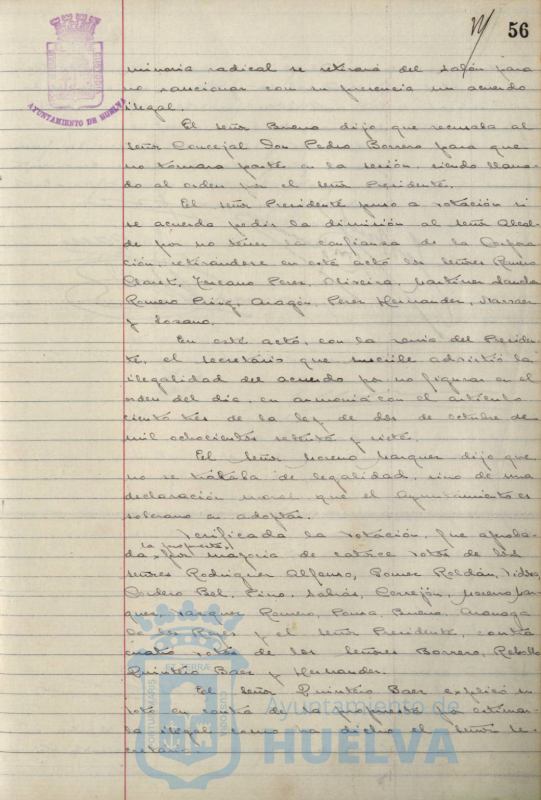 56
AYUNTAMIENTO DE HUELVA
minoria radical se retirará del salón para
no sancionar con su presencia un acuerdo
ilegal.
El Señor Bueno dijo que recusaba al
Señor Concejal Don Pedro Borrero para que
no tomara parte en la sesión, siendo llama-
do al orden por el Señor Presidente.
El Señor Presidente puso a votación si
se acuerda pedir la dimisión al Señor Alcal-
de por no tener la confianza de la Corpora-
ción, retirandose en este acto los Señores
Claret, Perez, Oliveira, Martinez Sanchez
Romero Aragón, Perez Hernandez,
y Lozano.
En este acto, con la venia del Presiden-
te, el Secretario que suscribe advirtió la
ilegalidad del acuerdo por no figurar en el
orden del dia, en armonía con el artículo
ciento tres de la ley de dos de octubre de
mil ochocientos setenta y siete.
El Señor Moreno Marquez dijo que
no se trataba de legalidad, sino de una
declaración moral que el Ayuntamiento es
soberano en adoptar.
Verificada la votación, fue aproba-
da la propuesta, por mayoria de catorce votos de los
Señores Rodriguez Alfonso, Gomez Roldán,
Cordero Bel, Pino, Terrejón, Moreno Mar-
quez, Vazquez Romero, Ponsa, Bueno,
de los Reyes y el Señor Presidente, contra
cuatro votos de los Señores Borrero, Rebollo
Quintero Baez y Hernandez.
El Señor Quintero Baez explicó su
voto en contra de la propuesta por estimar-
la ilegal como ha dicho el Señor Se-
cretario.
Ayuntamiento de
HUELVA